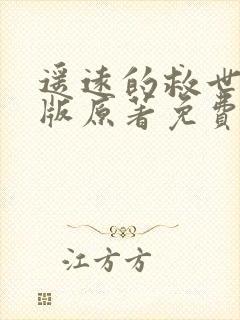 遥远的救世
版原著免费
江方方